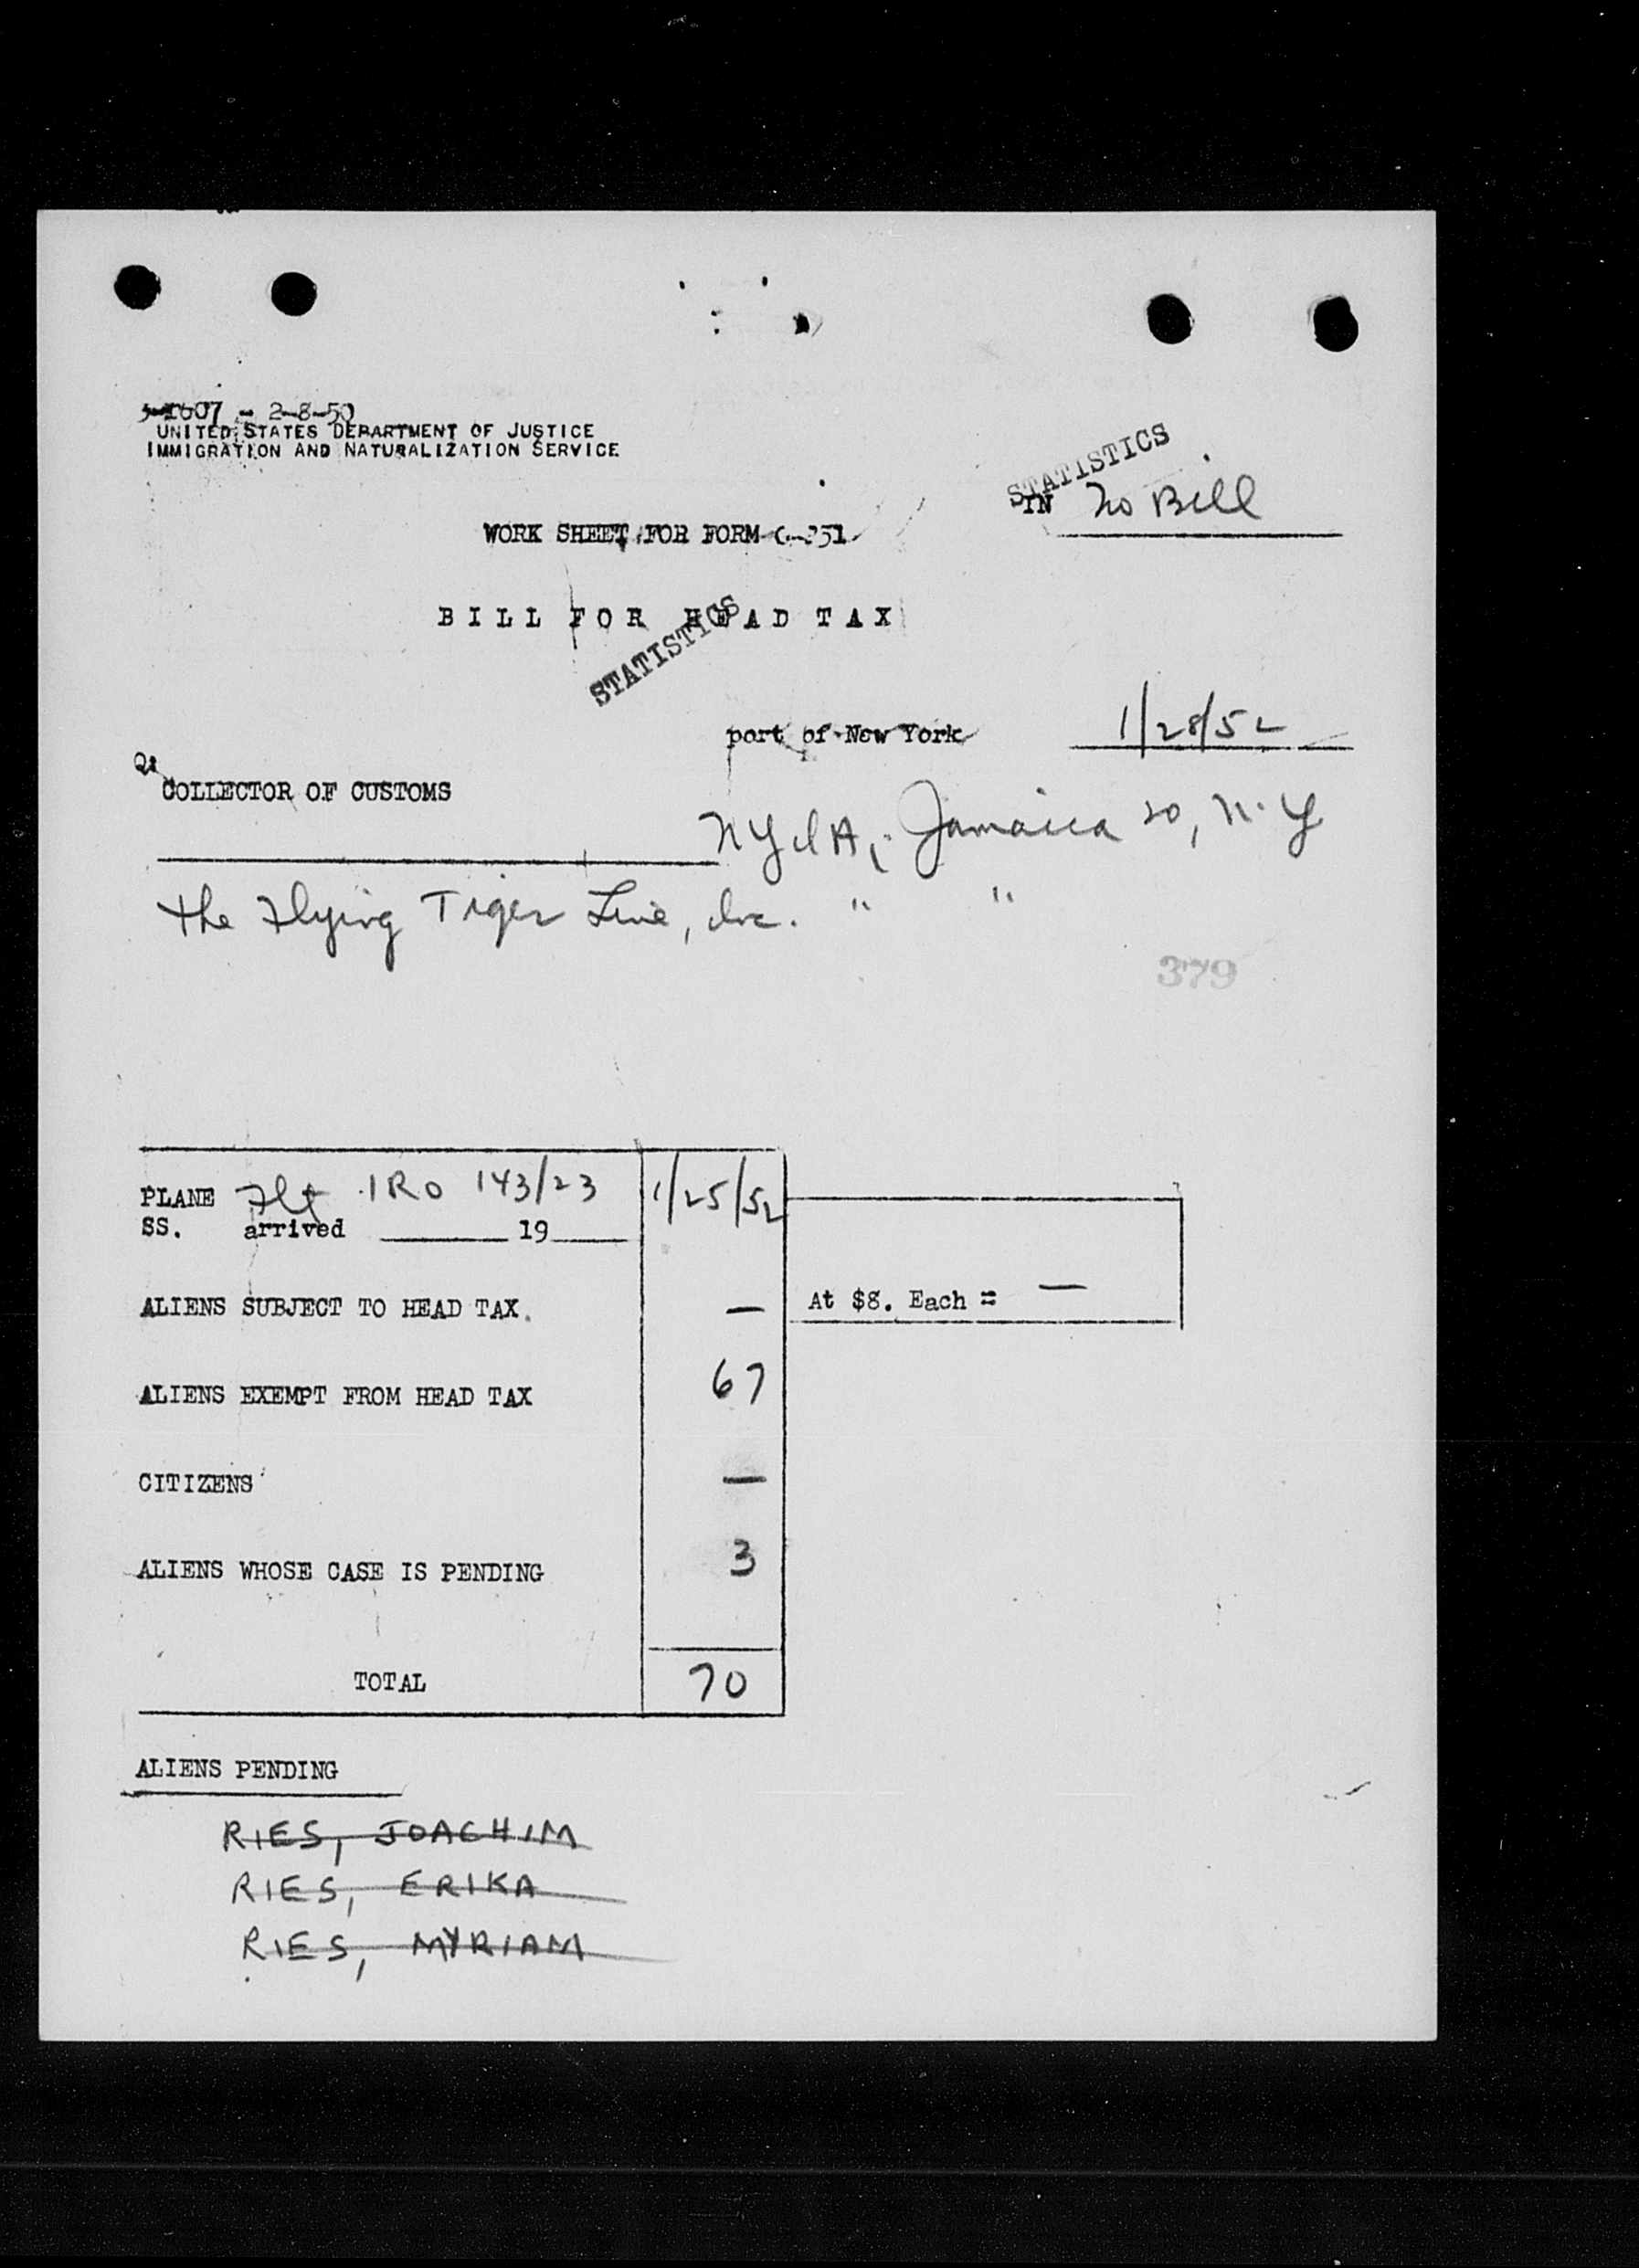 1607 - 2-8-50
UNITED STATES DEPARTMENT OF JUSTICE
IMMIGRATION AND NATURALIZATION SERVICE
STATISTICS
IN No Bill
WORK SHEET FOR FORM
BILL FOR HEAD TAX
STATISTICS
port of New York 1/28/52
COLLECTOR OF CUSTOMS
NYIA, Jamaica 20, N.Y
The Flying Tiger Line, Inc. " "
379
PLANE Flt IRO 143/23 1/25/52
SS. arrived 19
ALIENS SUBJECT TO HEAD TAX. — At $8. Each = —
ALIENS EXEMPT FROM HEAD TAX 67
CITIZENS —
ALIENS WHOSE CASE IS PENDING 3
TOTAL 70
ALIENS PENDING
RIES, JOACHIM
RIES, ERIKA
RIES, MYRIAM